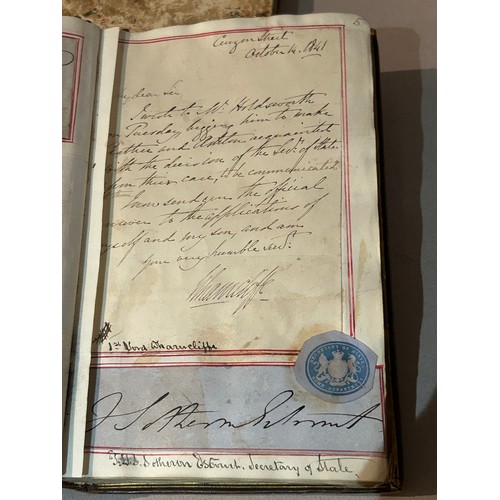 5
Curzon Street
October 14. 1841
My dear Sir
I wrote to Mr Holdsworth
on Tuesday begging him to make
and acquainted
with the decision of the Secy. of State
upon their case, to be communicated
I now send you the official
answer to the applications of
myself and my son, and am
your very humble Servt.
Wharncliffe
1st Lord Wharncliffe
SECRETARY OF STATE
T Sotheron Estcourt
T.H.S. Sotheron Estcourt. Secretary of State.